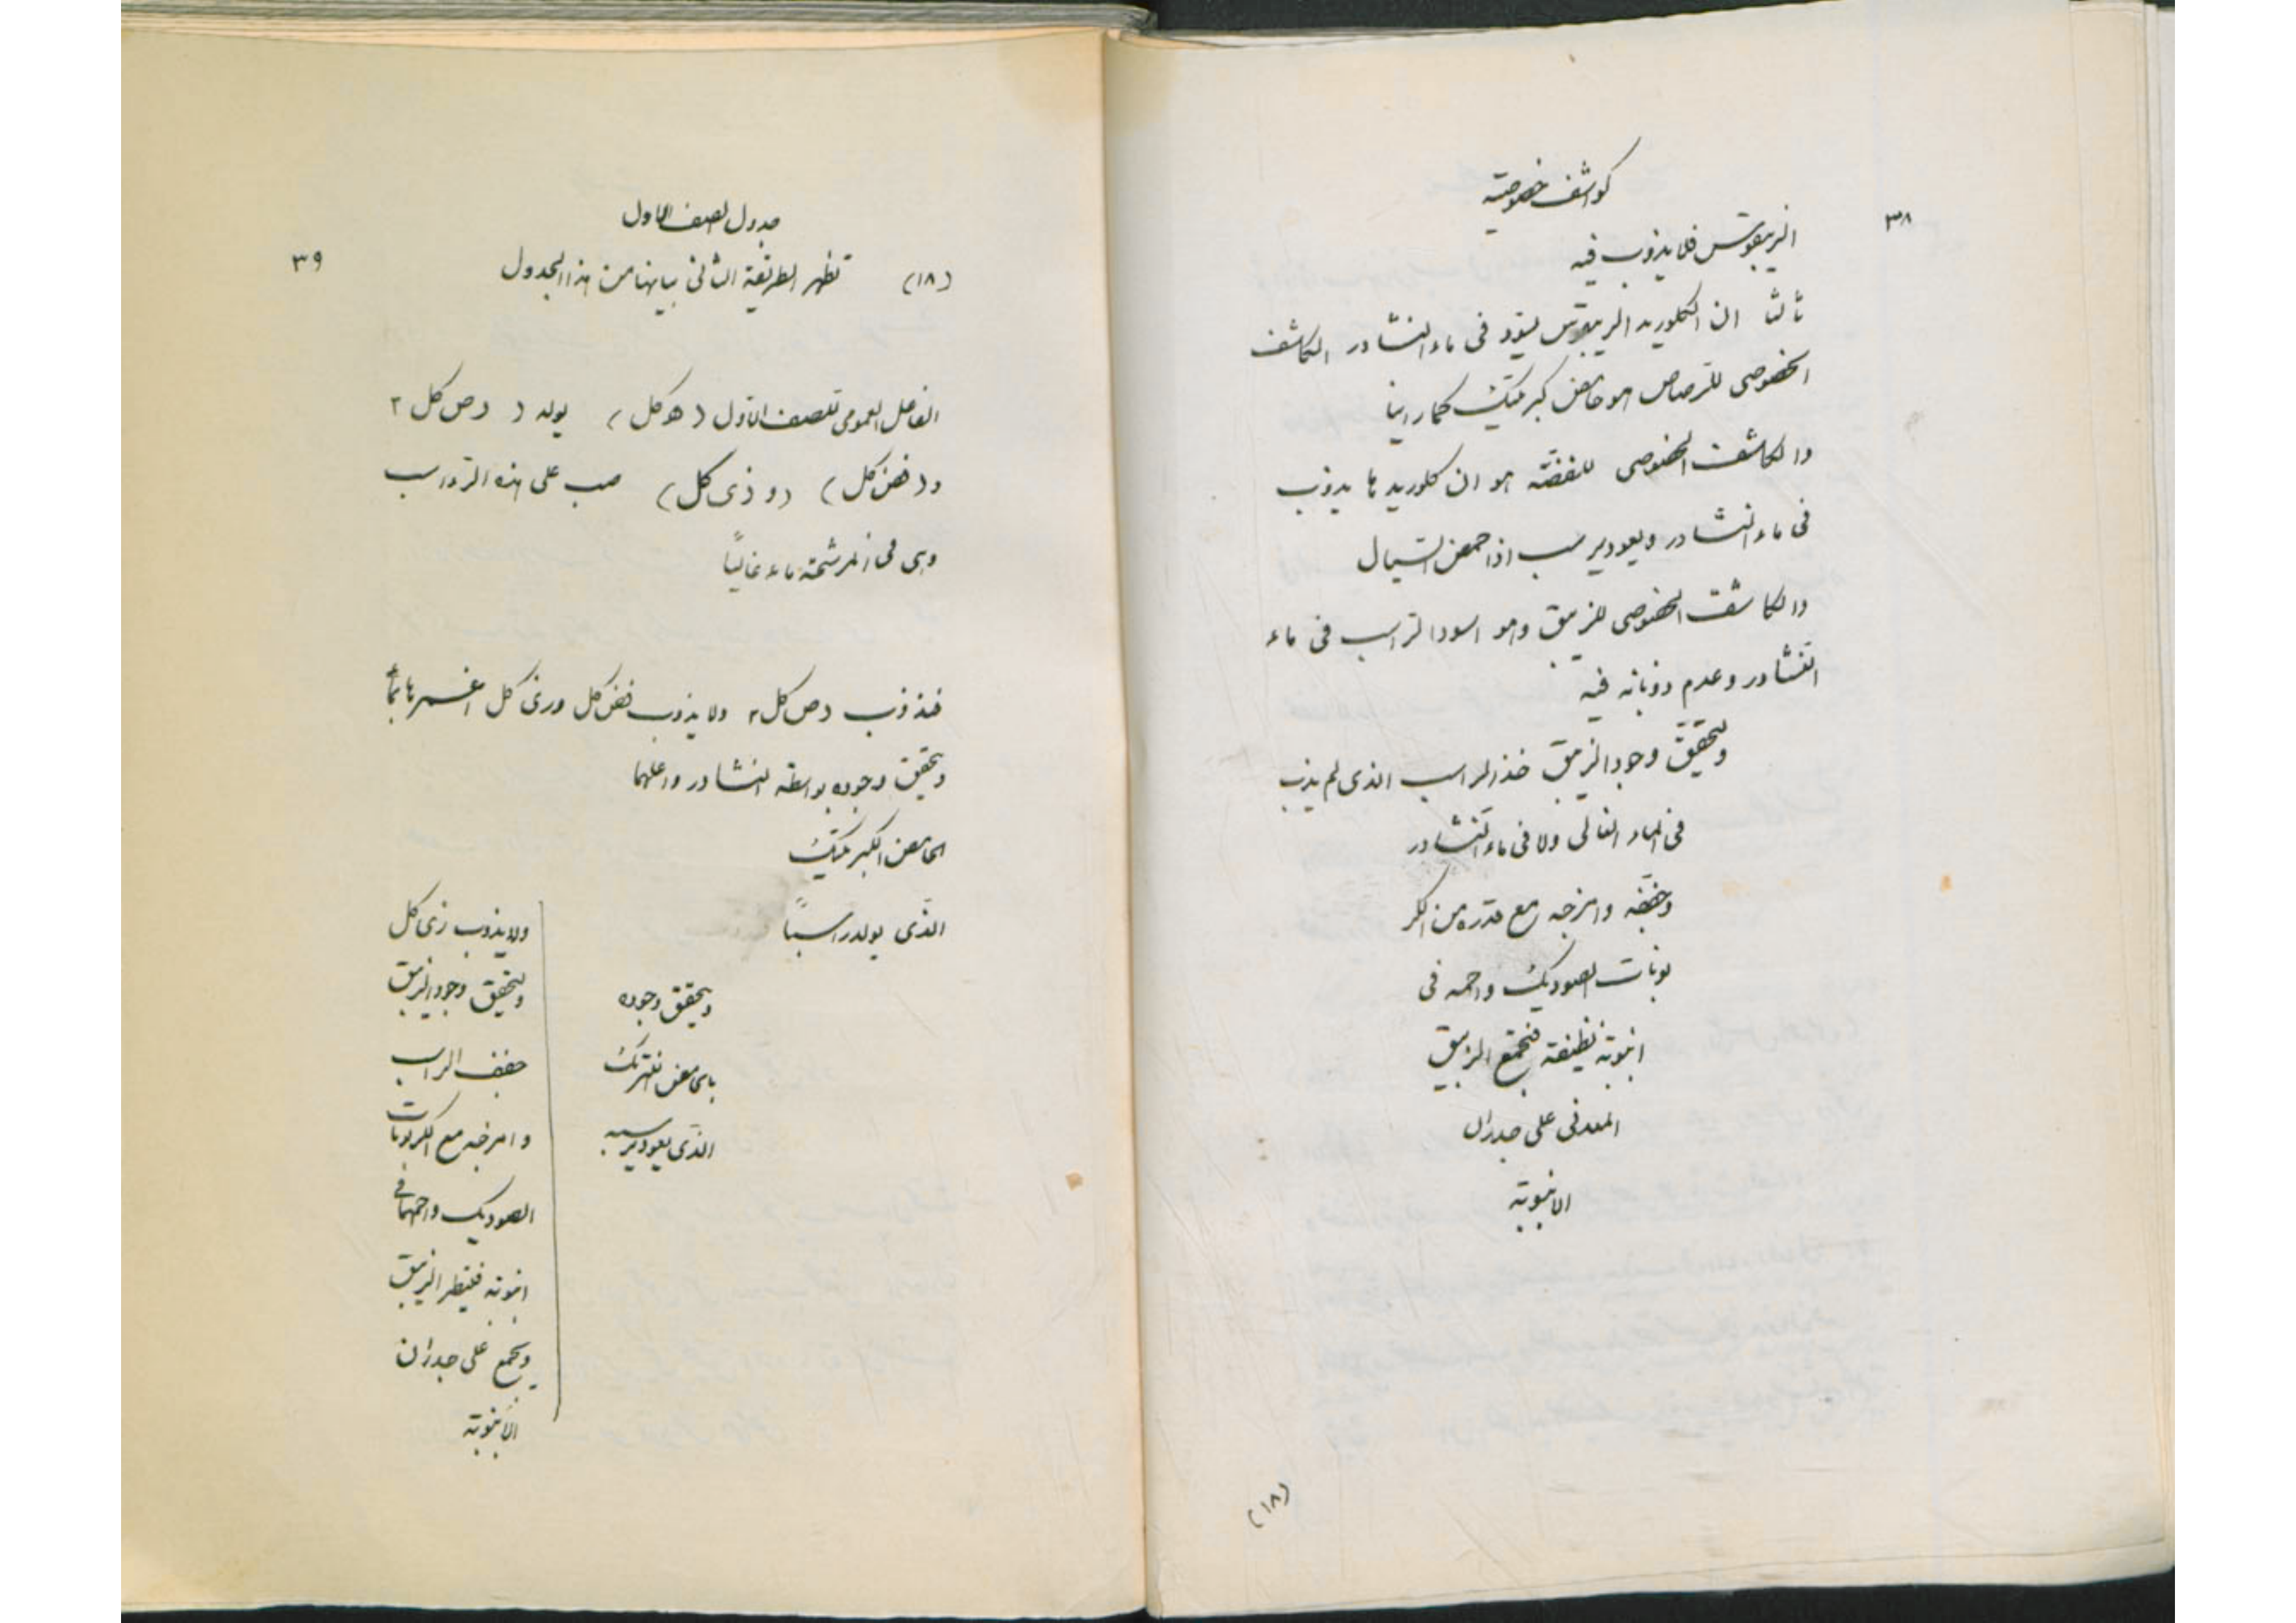 ٣٨
كواشف خصوصية
الزيبقوس فلا يذوب فيه
ثالثا ان الكلوريد الزيبقوس يسود في ماء النشادر الكاشف
الخصوصى للرصاص هو حامض كبريتيك كما راينا
والكاشف الخصوصى للفضة هو ان كلوريدها يذوب
فى ماء النشادر ويعود يرسب اذا حمض السيال
والكاشف الخصوصى للزيبق وهو اسوداد الراسب فى ماء
النشادر وعدم ذوبانه فيه
ولتحقيق وجود الزيبق خذ الراسب الذى لم يذب
فى الماء الغالى ولا فى ماء النشادر
وخففه وامزجه مع قدره من الكر
بونات الصوديك واحمه فى
انبوبة نظيفة فيجتمع الزيبق
المعدنى على جدران
الانبوبة
(١٨)
٣٩
جدول الصف الاول
(١٨) تظهر الطريقة الثانى بيانها من هذا الجدول
الفاعل العمومى للصف الاول (هوكل) يولد (رص كل ٢
و(فض كل) (و زى كل) صب على هذه الرواسب
وهى فى المرشحة ماء غاليًا
فيذوب رص كل٢ ولا يذوب فض كل وزى كل اغسرها بماء
ويحقق وجوده بواسطة النشادر واعلهما
الحامض الكبريتيك
الذى يولد راسبًا
ويحقق وجوده
بالحامض نيتريك
الذى يعود يرسبه
ولا يذوب زى كل
ولتحقيق وجود الزيبق
جفف الراسب
وامزجه مع الكربونات
الصوديك واحمها فى
انبوبة فيقطر الزيبق
ويجمع على جدران
الانبوبة